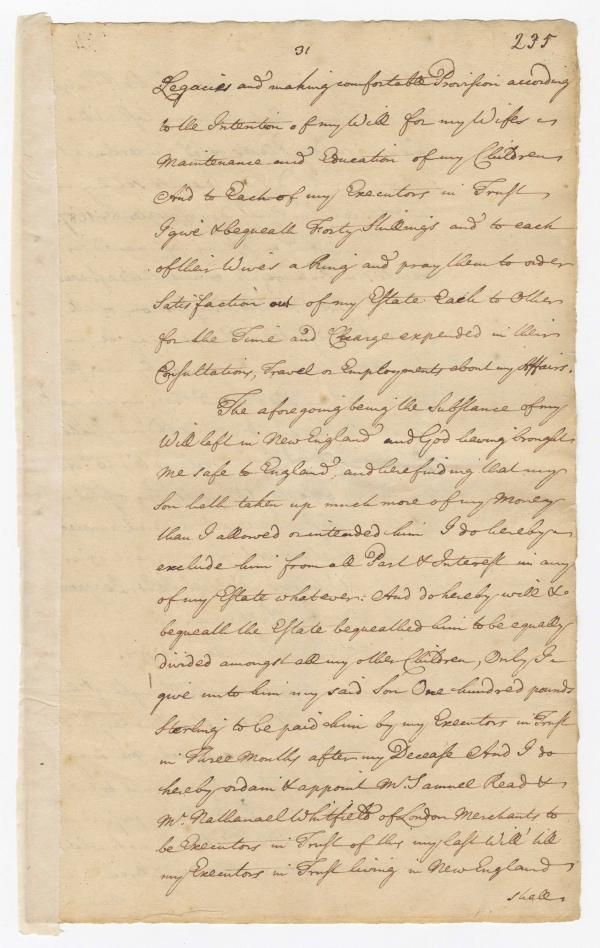 31
235
Legacies and making comfortable Provision according
to the Intention of my Will for my Wifes
Maintenance and Education of my Children
And to Each of my Executors in Trust
I give & bequeath Forty Shillings and to each
of their Wives a Ring and pray them to order
Satisfaction out of my Estate Each to Other
for the Time and Charge expended in their
Consultations, Travel or Employments about my Affairs.
The aforegoing being the Substance of my
Will left in New England and God having brought
me safe to England, and here finding that my
Son hath taken up much more of my Money
than I allowed or intended him I do hereby
exclude him from all Part & Interest in any
of my Estate whatever: And do hereby will &
bequeath the Estate bequeathed him to be equally
divided amongst all my other Children, Only I
give unto him my said Son One hundred pounds
Sterling to be paid him by my Executors in Trust
in Three Months after my Decease And I do
hereby ordain & appoint Mr. Samuel Read &
Mr. Nathanael Whitfield of London Merchants to
be Executors in Trust of this my last Will till
my Executors in Trust living in New England
shall